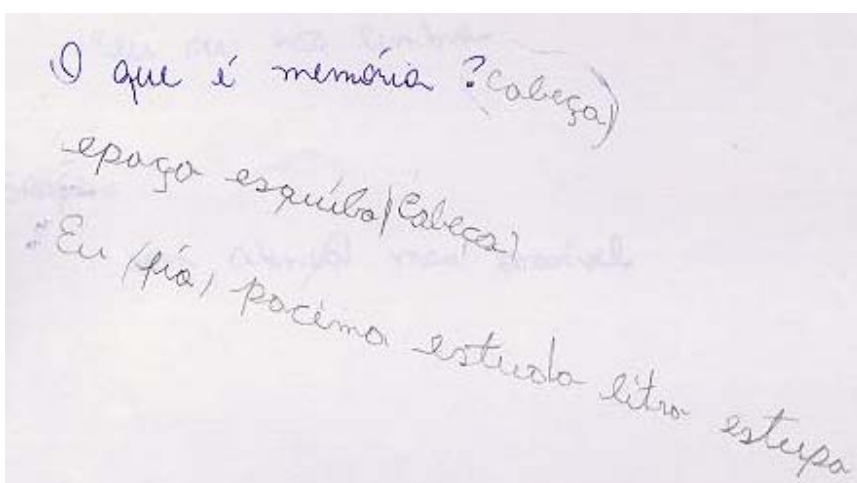 O que é memória ? (Cabeça)
epaço esquiba (Cabeça)
"Eu (fia) pocima estuda litra estupa